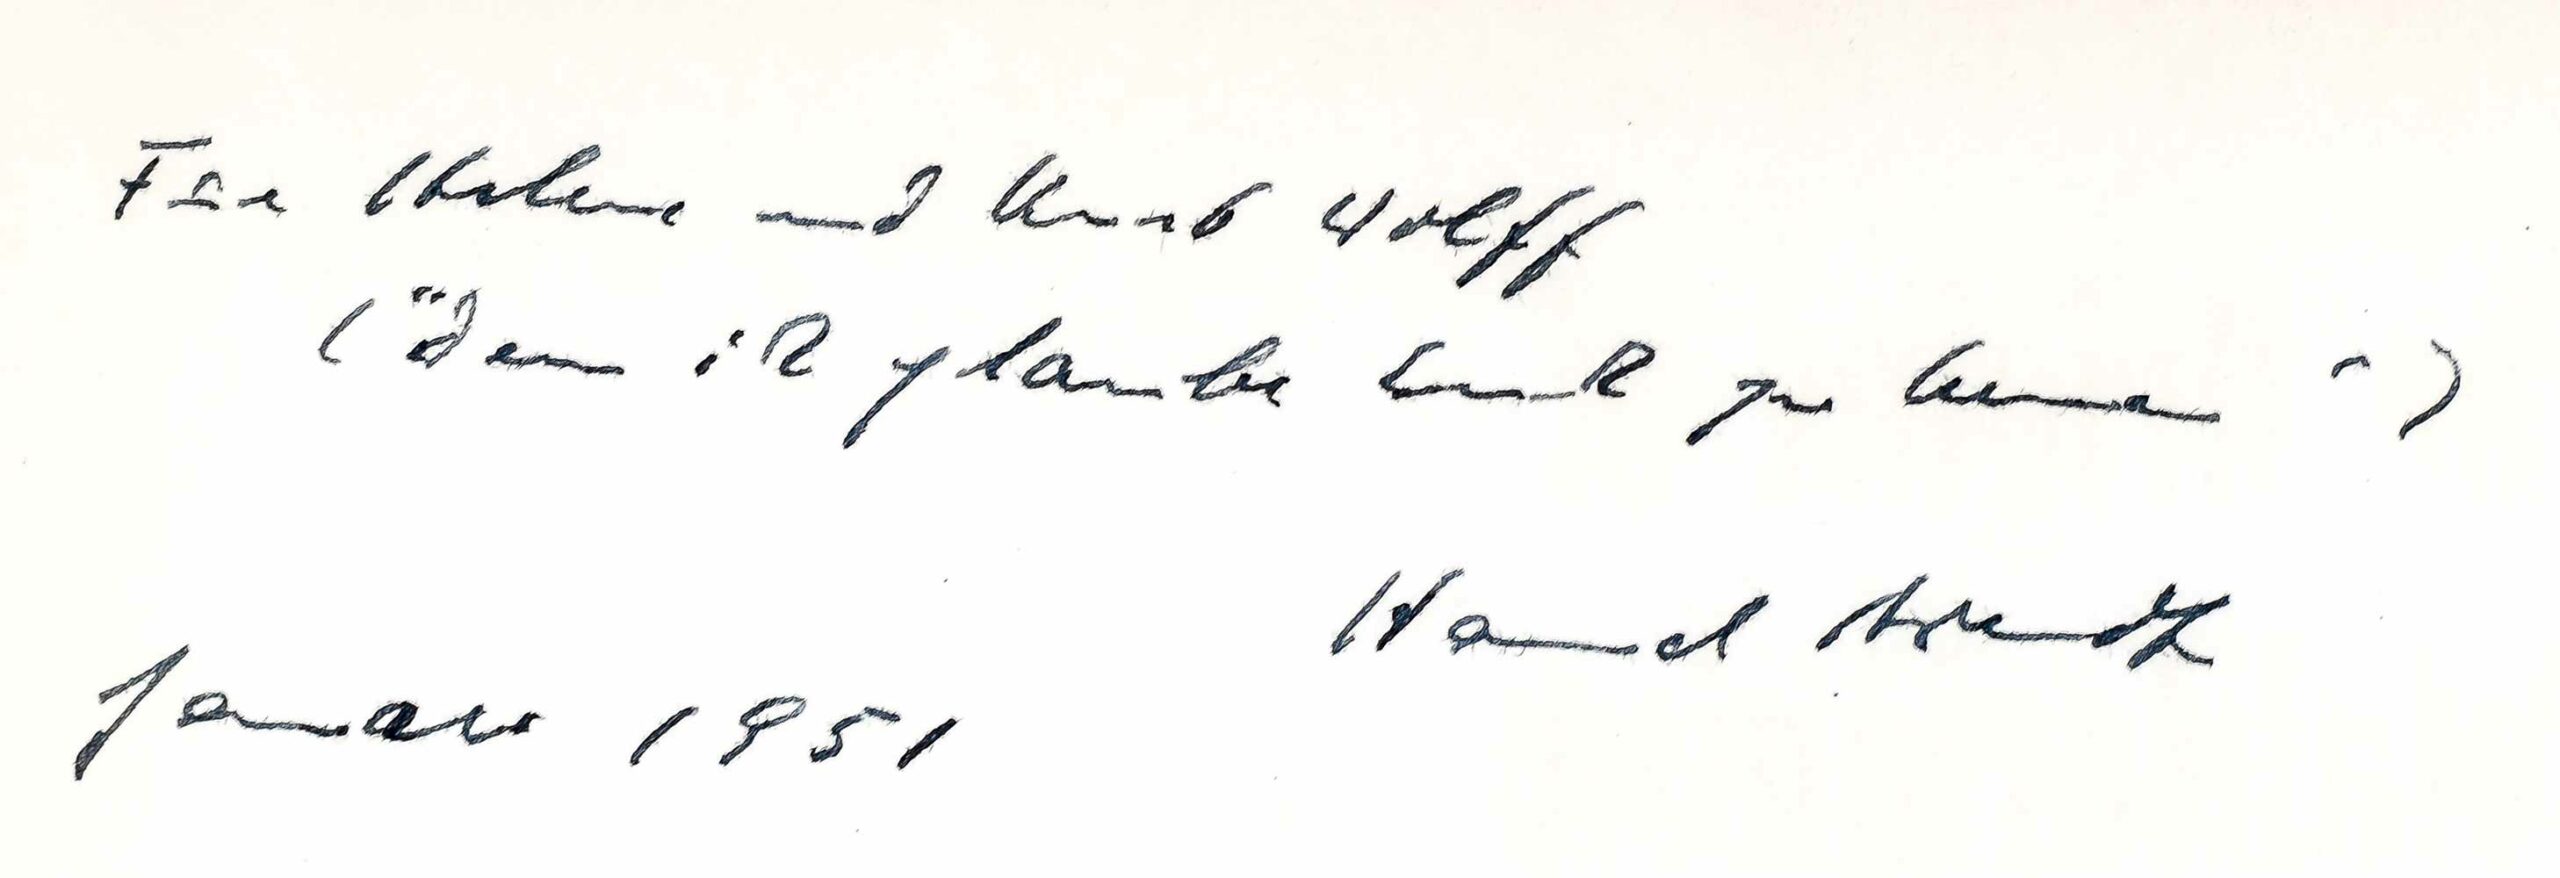 Für Helene und Kurt Wolff
("denn ich glaube Euch zu kennen")
Hannah Arendt
Januar 1951